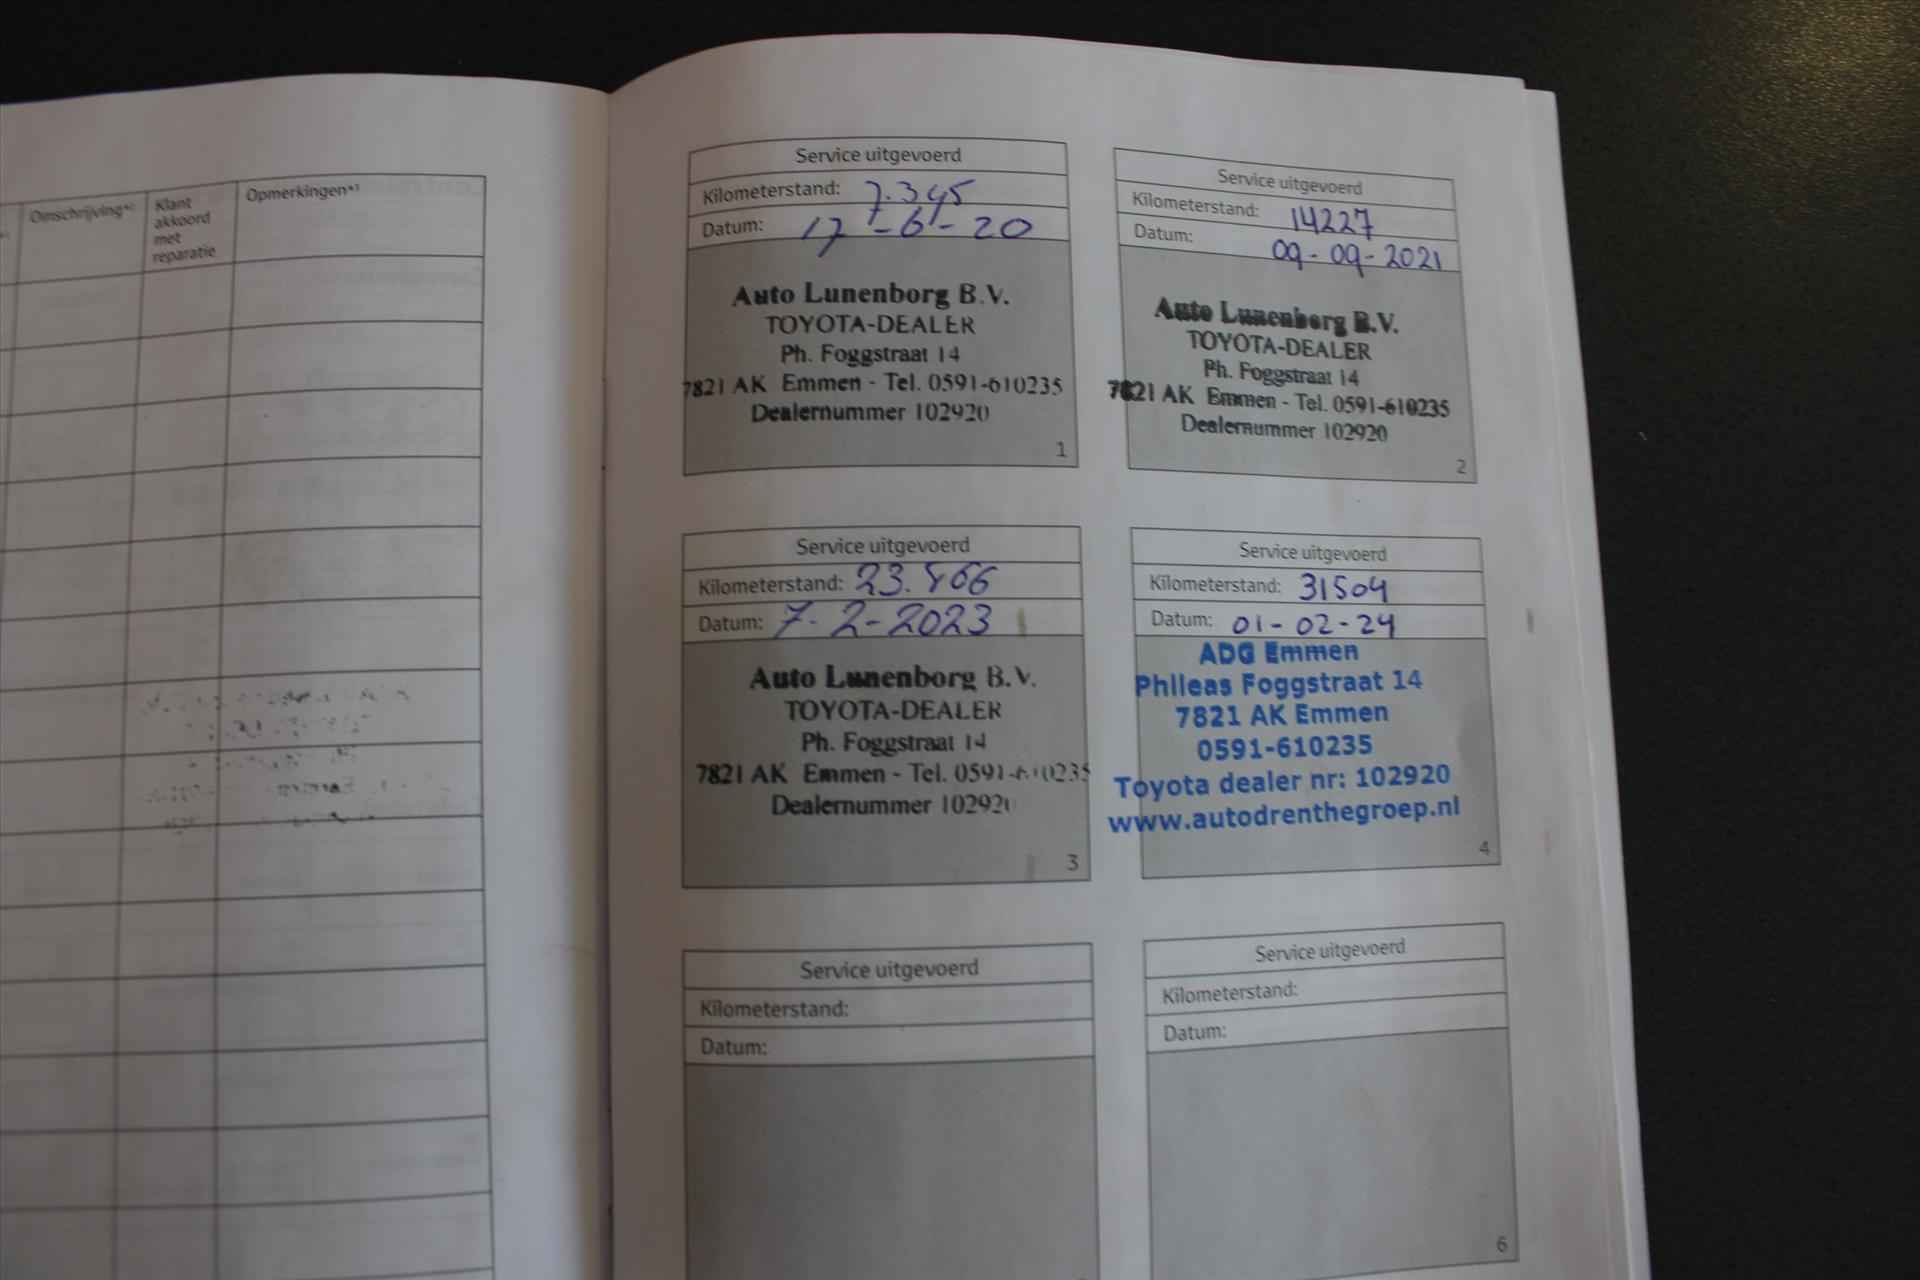 Omschrijving*²
Klant
akkoord
met
reparatie
Opmerkingen*³
Service uitgevoerd
Kilometerstand: 7.345
Datum: 17-6-20
Auto Lunenborg B.V.
TOYOTA-DEALER
Ph. Foggstraat 14
7821 AK Emmen - Tel. 0591-610235
Dealernummer 102920
1
Service uitgevoerd
Kilometerstand: 14227
Datum: 09-09-2021
Auto Lunenborg B.V.
TOYOTA-DEALER
Ph. Foggstraat 14
7821 AK Emmen - Tel. 0591-610235
Dealernummer 102920
2
Service uitgevoerd
Kilometerstand:
Datum: 7-2-2023
Auto Lunenborg B.V.
TOYOTA-DEALER
Ph. Foggstraat 14
7821 AK Emmen - Tel. 0591-610235
Dealernummer 102920
3
Service uitgevoerd
Kilometerstand: 31504
Datum: 01-02-24
ADG Emmen
Phileas Foggstraat 14
7821 AK Emmen
0591-610235
Toyota dealer nr: 102920
www.autodrenthegroep.nl
4
Service uitgevoerd
Kilometerstand:
Datum:
Service uitgevoerd
Kilometerstand:
Datum:
6